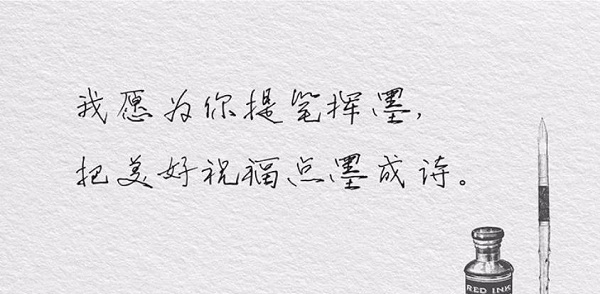 我愿为你提笔挥墨，
把美好祝福点墨成诗。
RED INK